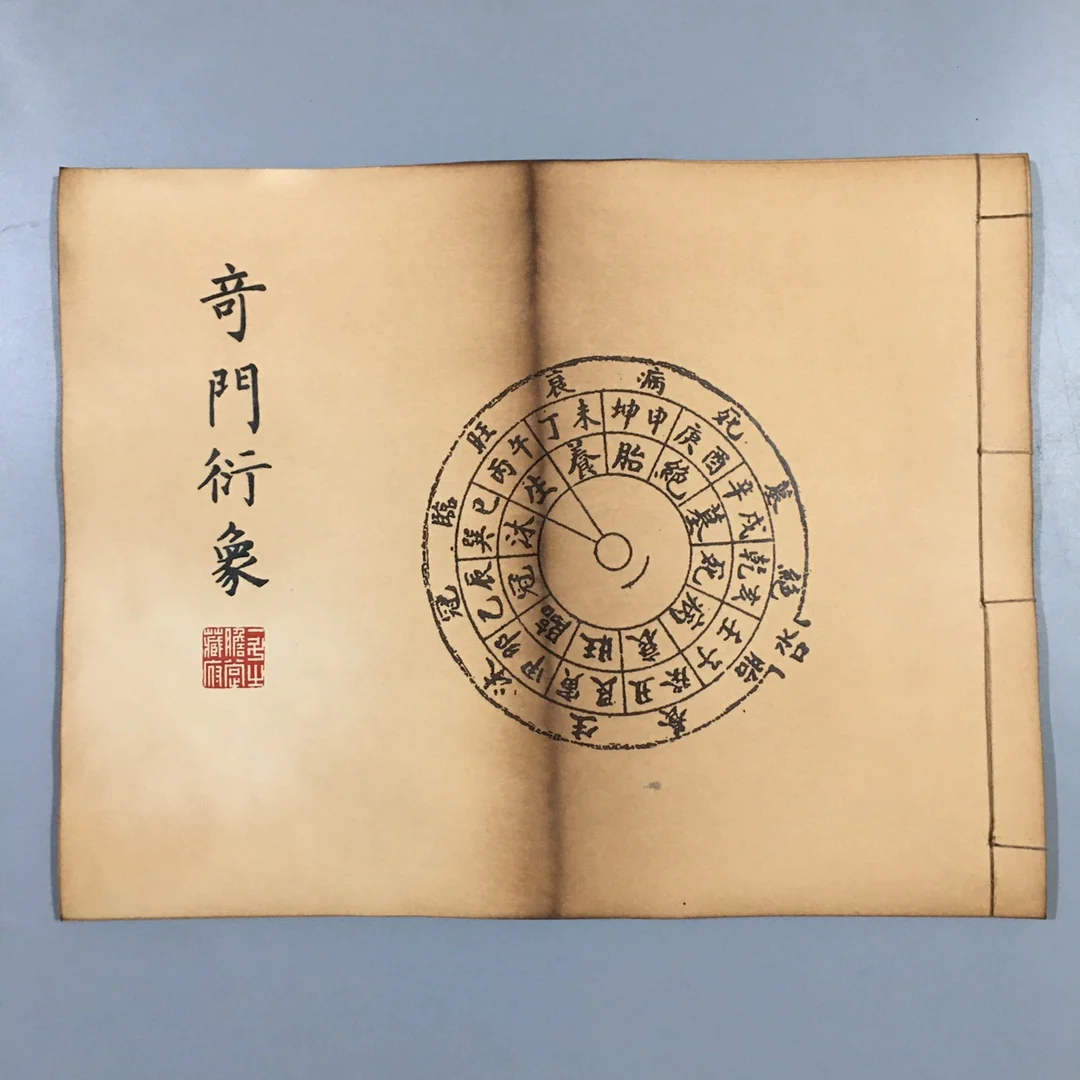 竒門衍象
衰
病
死
墓
絶
胎
養
生
沐
冠
臨
旺
水口
丁未
坤申
庚酉
辛戌
乾亥
壬子
癸丑
艮寅
甲卯
乙辰
巽巳
丙午
養
胎
絶
墓
死
病
衰
旺
臨
冠
沐
生
藏府